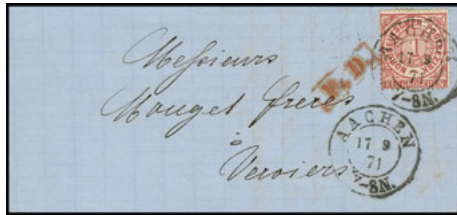 Messieurs
P.D.
Mouget frères
à
Verviers
AACHEN
17 9
71
7-8N.
1
AACHEN
17 9
71
7-8N.